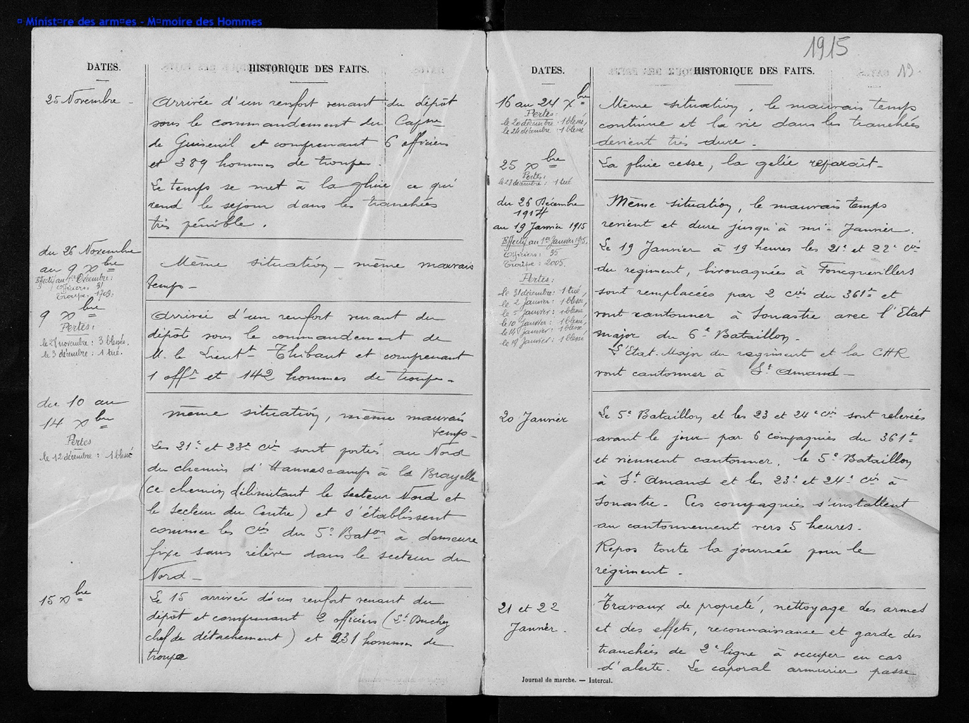 ¤ Minist¤re des arm¤es - M¤moire des Hommes
DATES.
HISTORIQUE DES FAITS.
25 Novembre -
Arrivée d'un renfort venant du dépôt
sous le commandement du Capne
de Guiseuil et comprenant 6 officiers
et 389 hommes de troupe.
Le temps se met à la pluie ce qui
rend le séjour dans les tranchées
très pénible.
du 26 Novembre
au 9 Xbre
Effectif au 1er Décembre:
Officiers: 31
Troupe: 1703.
Même situation - même mauvais
temps -
9 Xbre
Pertes:
le 28 novembre: 3 blessés.
le 3 décembre: 1 tué.
Arrivée d'un renfort venant du
dépôt sous le commandement de
M. le Lieutt Thibaut et comprenant
1 offr et 142 hommes de troupe -
du 10 au
14 Xbre
Pertes
le 12 décembre: 1 blessé
même situation, même mauvais
temps -
Les 21e et 23e Cies sont portés au Nord
du chemin d'Hannescamp à la Brayelle
(ce chemin délimitant le secteur Nord et
le secteur du Centre) et s'établissent
comme les Cies du 5e Baton à demeure
fixe sans relève dans le secteur du
Nord -
15 Xbre
Le 15 arrivée d'un renfort venant du
dépôt et comprenant 2 officiers (Lt Duchey
chef de détachement) et 231 hommes de
troupe
1915
DATES.
HISTORIQUE DES FAITS.
19.
16 au 24 Xbre
Pertes:
le 20 décembre: 1 blessé,
le 24 décembre: 1 blessé
Même situation, le mauvais temps
continue et la vie dans les tranchées
devient très dure.
25 Xbre
Pertes:
1 tué
La pluie cesse, la gelée reparaît -
du 26 Décembre
1914
au 19 Janvier 1915
Effectif au 1er Janvier 1915,
Officiers: 35
Troupe: 2005.
Pertes:
le 31 décembre: 1 tué,
le 2 Janvier: 1 blessé,
le 5 Janvier: 1 blessé
le 10 Janvier: 1 blessé,
le 14 Janvier: 1 blessé,
le 17 Janvier: 1 blessé
Même situation, le mauvais temps
revient et dure jusqu'à mi-Janvier.
Le 19 Janvier à 19 heures les 21e et 22e Cies
du régiment, bivouaquées à Foncquevillers
sont remplacées par 2 Cies du 361e et
vont cantonner à Souastre avec l'Etat
major du 6e Bataillon.
L'Etat-Major du régiment et la CHR
vont cantonner à St Amand -
20 Janvier
Le 5e Bataillon et les 23 et 24e Cies sont relevées
avant le jour par 6 compagnies du 361e
et viennent cantonner, le 5e Bataillon
à St Amand et les 23e et 24e Cies à
Souastre. Ces compagnies s'installent
au cantonnement vers 5 heures.
Repos toute la journée pour le
régiment.
21 et 22
Janvier.
Travaux de propreté, nettoyage des armes
et des effets, reconnaissance et garde des
tranchées de 2e ligne à occuper en cas
d'alerte. Le caporal armurier passe
Journal de marche. — Intercal.